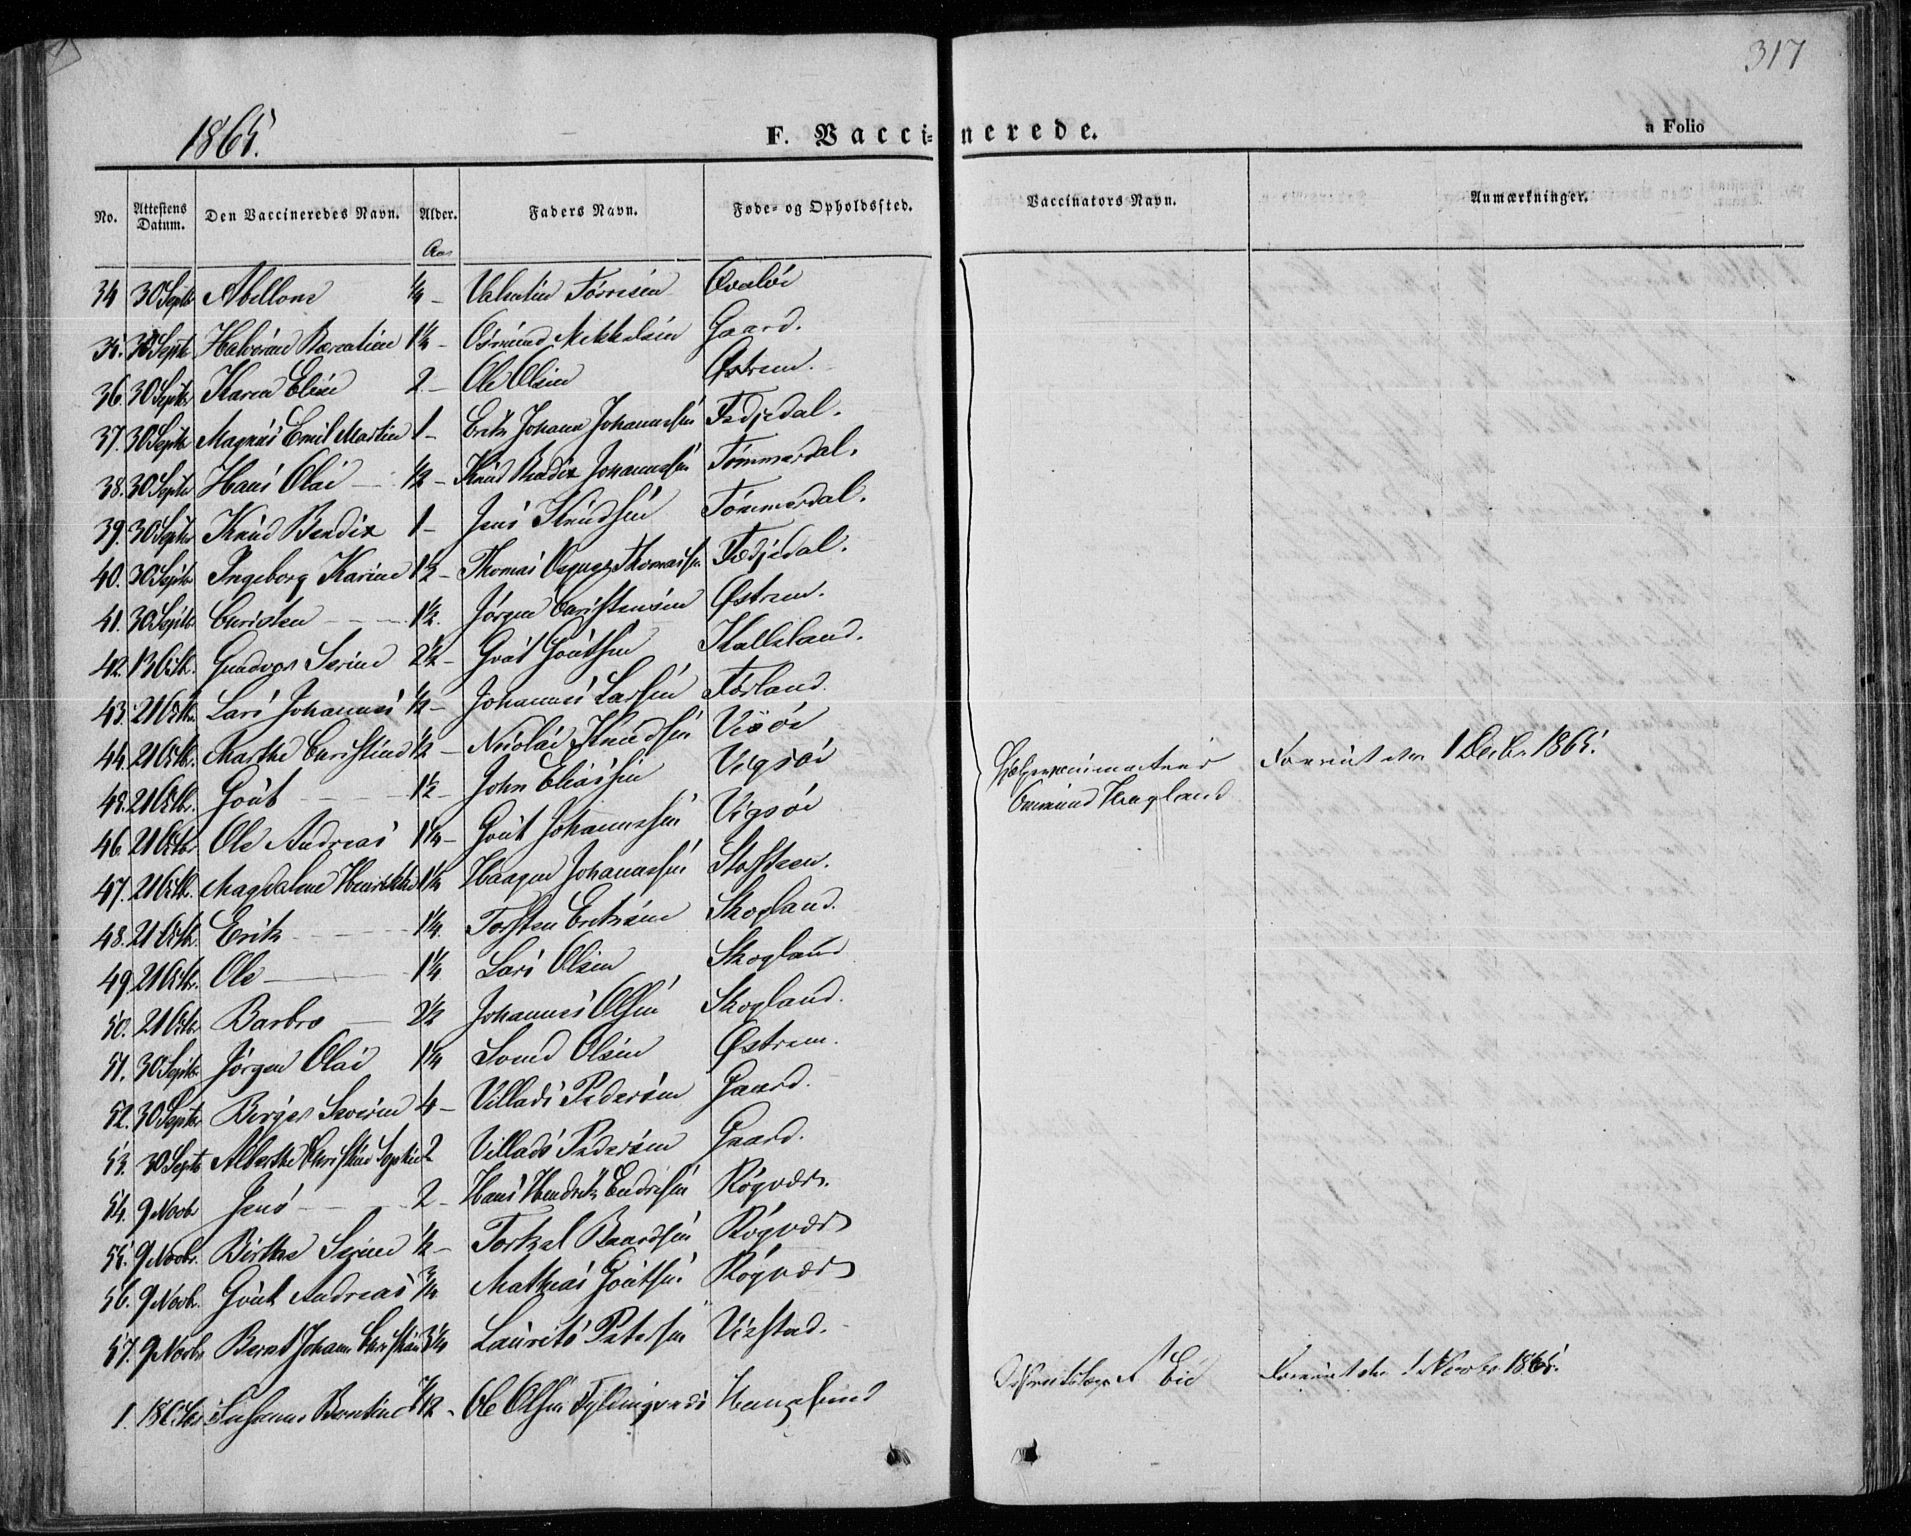 317
1865.
F. Vaccinerede.
a Folio
No. Attestens Datum. Den Vaccineredes Navn. Alder. Faders Navn. Føde- og Opholdssted. Vaccinators Navn. Anmærkninger.
Aar
34 30 Septbr Abellone 1/4 - Valentin Tørresen
35. 30 Septbr 1 1/4 - Osmund Mikkelsen Gaard.
36. 30 Septbr Karen Elise 2 - Ole Olsen Østrem.
37. 30 Septbr Magnus Emil Martin 1 - Erik Johann Johannessen Fædjedal.
38. 30 Septbr Hans Olai 1/2 - Knud Bendix Johannessen Tømmerdal.
39. 30 Septbr Knud Bendix 1 - Jens Knudsen Tømmerdal.
40. 30 Septbr Ingeborg Karine 1 1/2 - Thomas Thomassen Fædjedal.
41. 30 Septbr Christen 1 1/2. Jørgen Christensen Østrem.
42. 13 Octbr. Gundvor Serine 2 1/2 - Goút Goútsen Kalleland.
43. 21 Octbr. Lars Johannes 1/2 - Johannes Larsen Førland.
44. 21 Octbr. Marthe Christine 1/2 - Nicolai Knudsen
45. 21 Octbr. Goút 1 1/2 - John Eliassen Vigsøe
46. 21 Octbr. Ole Andreas 1 1/4 - Goút Johannessen Vigsøe
47. 21 Octbr. Magdalene Henrikke 1 1/4 Haagen Johannessen Stolsteen.
48. 21 Octbr. Erik 1 1/4. Torsten Eriksen Skogland.
49. 21 Octbr. Ole 1 1/4 Lars Olsen Skogland
50. 21 Octbr Barbro 2 1/2 Johannes Olsen Skogland.
51. 30 Septbr. Jørgen Olai 1 1/4 Svend Olsen Østrem.
52. 30 Septbr Birger Severin 4 - Villads Pedersen Gaard.
53. 30 Septbr Alberthe Christine Sophie 2 Villads Pedersen Gaard.
54. 9 Novbr Jens 2 - Hans Hendrik Endresen Røgvær.
55. 9 Novbr. Birthe Serine 1/2 - Torkel Baardsen Røgvær
56. 9 Novbr. Goút Andreas 3/4 Mathias Goútsen Røgvær
57. 9 Novbr Bernt Johan Christian 3 1/4 Laurits Petersen Vistad.
Hjelpevaccinateur Osmund Hagland
1 Decbr 1865.
1. 18 Octbr Susanne Bertine 7/12 - Ole Olsen Haugesund
Eie 1 Novbr 1865.